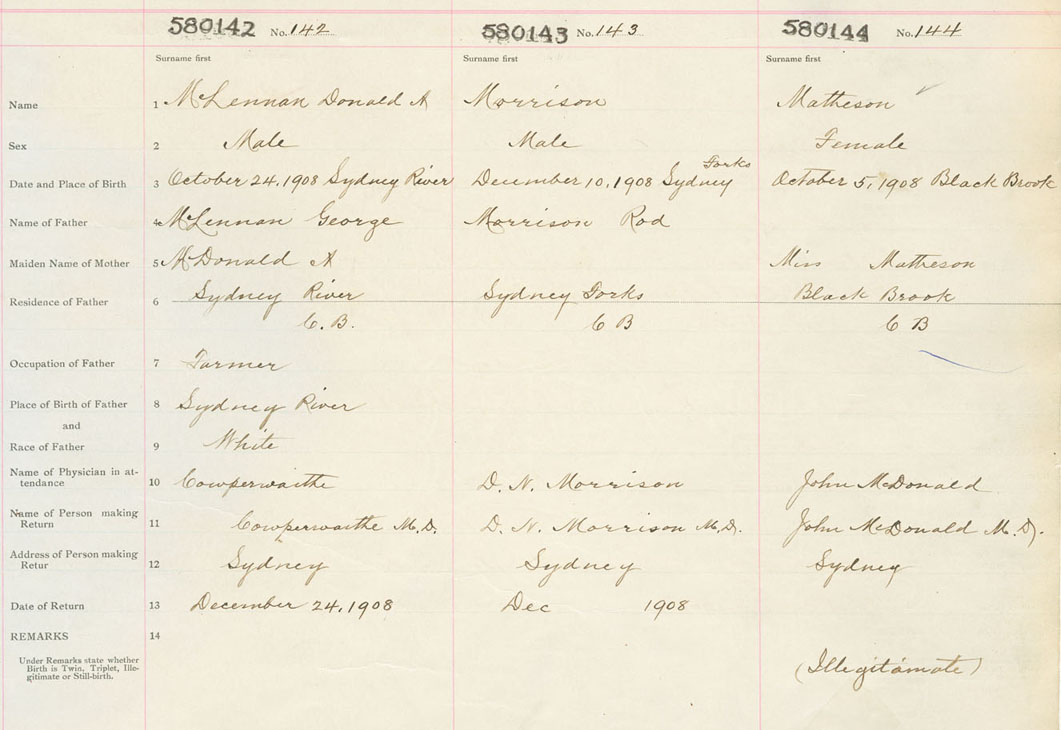 580142 No. 142 580143 No. 143 580144 No. 144
Surname first Surname first Surname first
Name 1 McLennan Donald A Morrison Matheson
Sex 2 Male Male Female
Forks
Date and Place of Birth 3 October 24, 1908 Sydney River December 10, 1908 Sydney October 5, 1908 Black Brook
Name of Father 4 McLennan George Morrison Rod
Maiden Name of Mother 5 McDonald A Miss Matheson
Residence of Father 6 Sydney River Sydney Forks Black Brook
C. B. C B C B
Occupation of Father 7 Farmer
Place of Birth of Father 8 Sydney River
and
Race of Father 9 White
Name of Physician in at-
tendance 10 Cowperwaithe D. N. Morrison John McDonald
Name of Person making
Return 11 Cowperwaithe M.D. D. N. Morrison M.D. John McDonald M.D.
Address of Person making
Retur 12 Sydney Sydney Sydney
Date of Return 13 December 24, 1908 Dec 1908
REMARKS 14
Under Remarks state whether
Birth is Twin, Triplet, Ille-
gitimate or Still-birth.
(Illegitamate)